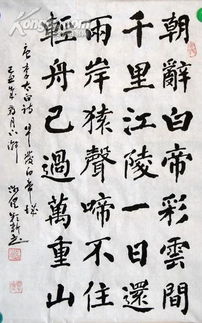 朝辭白帝彩雲間
千里江陵一日還
兩岸猿聲啼不住
輕舟已過萬重山
唐李太白詩早發白帝城